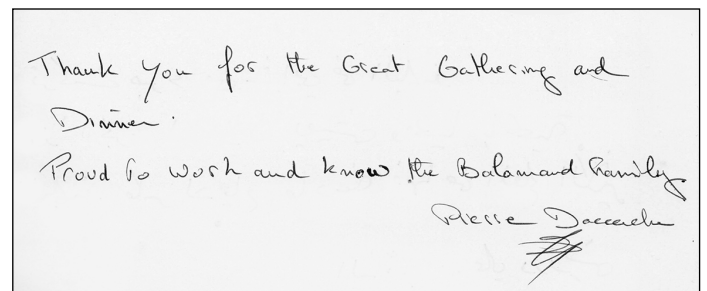 Thank you for the Great Gathering and
Dinner.
Proud to work and know the Balamand Family
Pierre